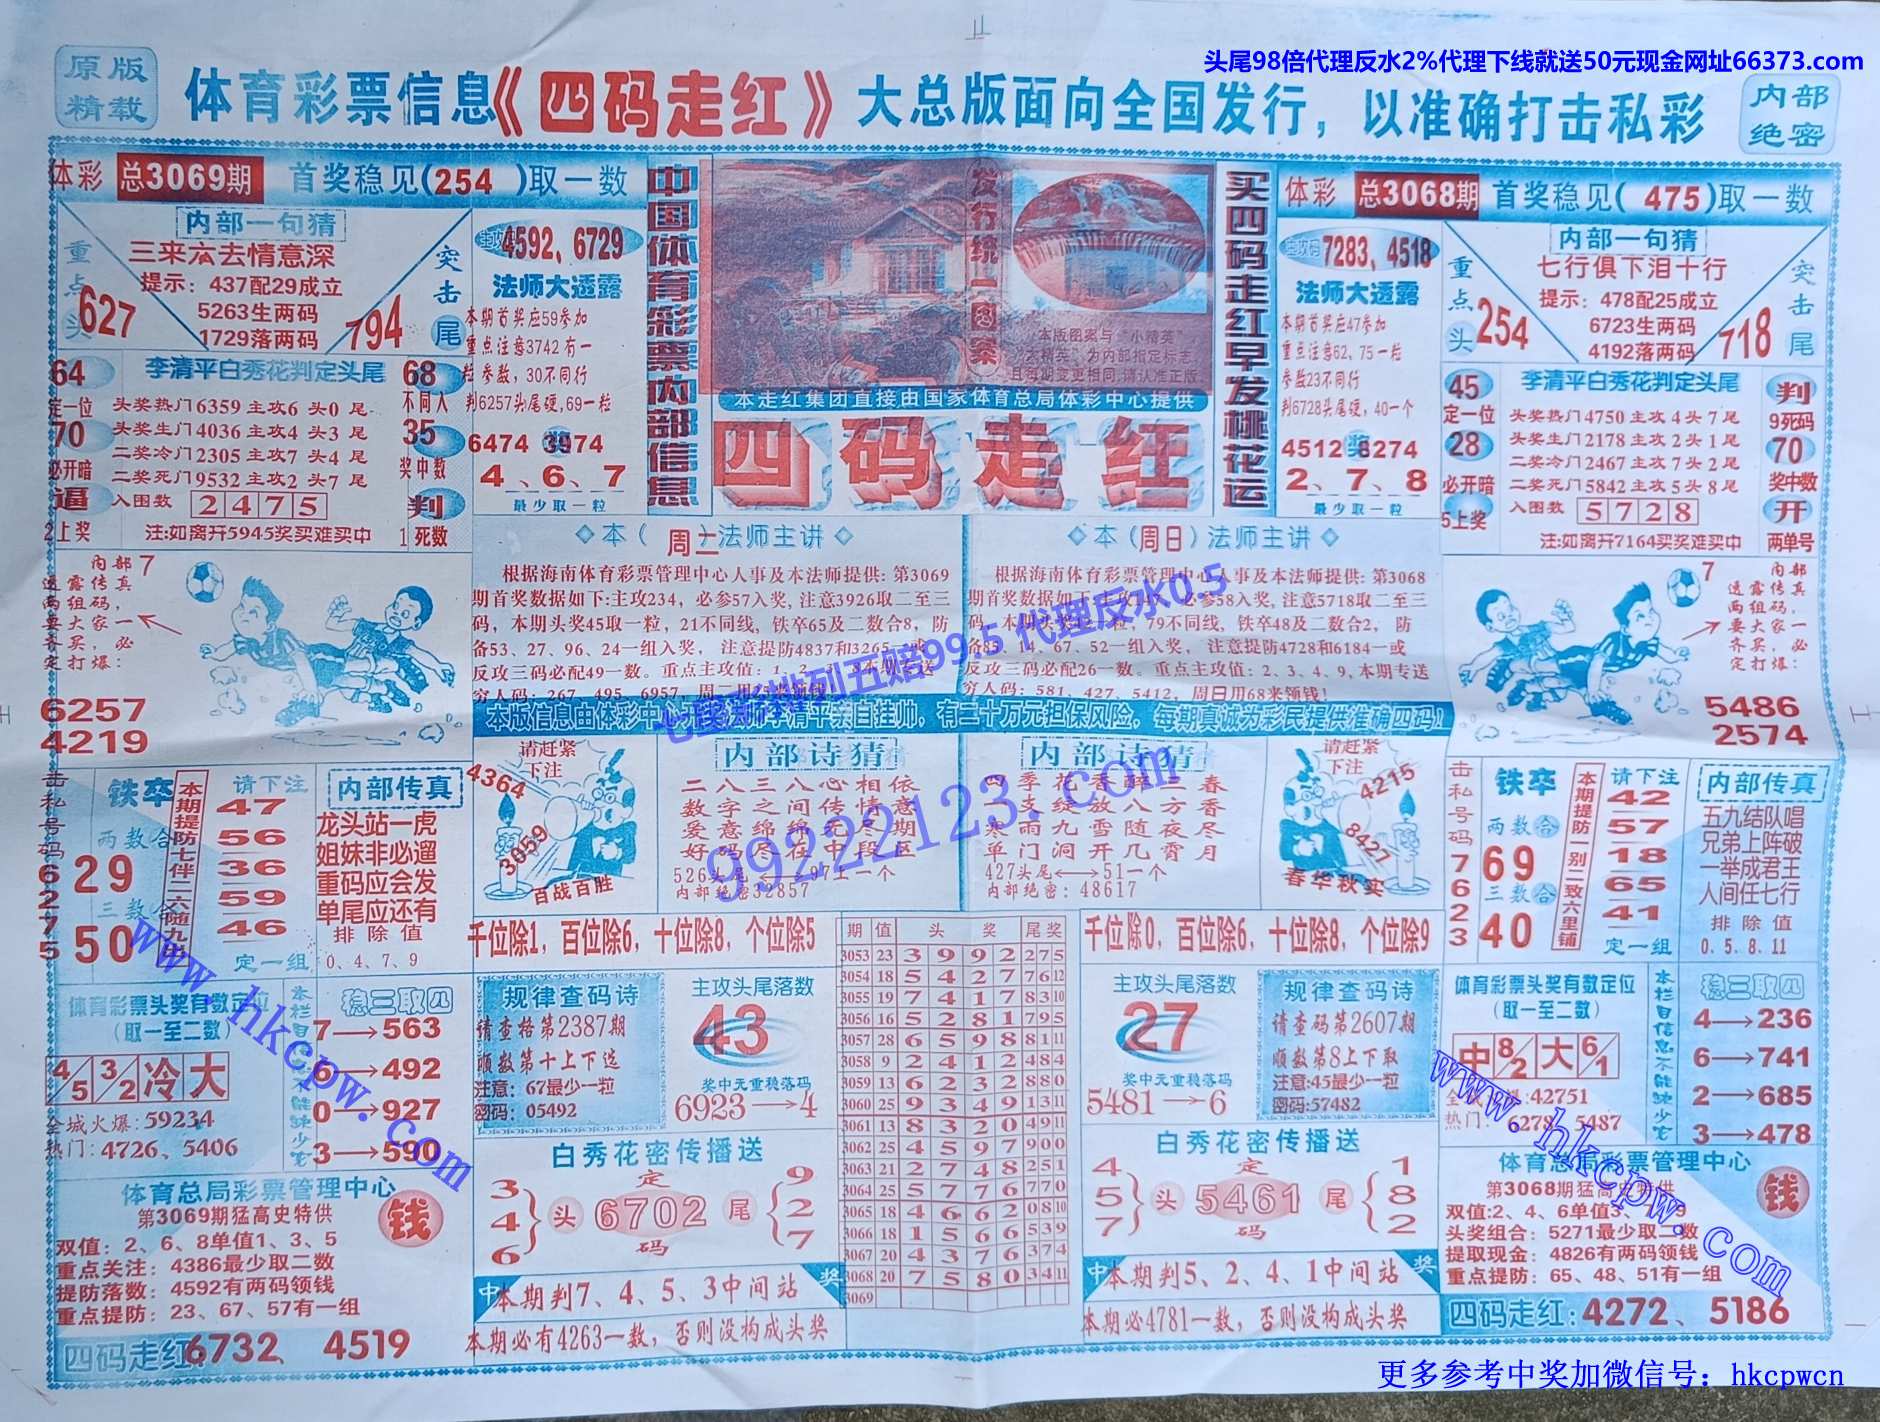 头尾98倍代理反水2%代理下线就送50元现金网址66373.com
原版
精裁
体育彩票信息《四码走红》大总版面向全国发行，以准确打击私彩
内部
绝密
体彩 总3069期 首奖稳见(254 )取一数
内部一句猜
三来六去情意深
提示：437配29成立
5263生两码
1729落两码
重点头
627
突击尾
794
4592, 6729
法师大透露
本期首奖应59参加
重点注意3742有一
粒参数，30不同行
判6257头尾硬,69一粒
6474 奖 3974
4、6、7
最少取一粒
64
定一位
70
必开暗
逼
2上奖
李清平白秀花判定头尾
头奖热门6359主攻6 头0 尾
头奖生门4036主攻4 头3 尾
二奖冷门2305主攻7 头4 尾
二奖死门9532主攻2 头7 尾
入围数 2 4 7 5
注:如离开5945奖买难买中
68
不同人
35
奖中数
判
1死数
中国体育彩票内部信息
发行统一图案
本版图案与“小精英”
“大精英”为内部指定标志，
且每期变更相同,请认准正版
本走红集团直接由国家体育总局体彩中心提供
四码走红
买四码走红早发桃花运
体彩 总3068期 首奖稳见( 475)取一数
主攻码 7283, 4518
法师大透露
本期首奖应47参加
重点注意62, 75一粒
参数23不同行
判6728头尾硬，40一个
4512 奖 8274
2、7、8
最少取一粒
内部一句猜
七行俱下泪十行
提示：478配25成立
6723生两码
4192落两码
重点头
254
突击尾
718
45
定一位
28
必开暗
5上奖
李清平白秀花判定头尾
头奖热门4750主攻4头7尾
头奖生门2178主攻2头1尾
二奖冷门2467主攻7头2尾
二奖死门5842主攻5头8尾
入围数 5 7 2 8
注:如离开7164买奖难买中
判
9死码
70
奖中数
开
两单号
内部7
透露传真
两组码，
要大家一
齐买，必
定打爆：
6257
4219
本(周二)法师主讲
根据海南体育彩票管理中心人事及本法师提供: 第3069
期首奖数据如下:主攻234，必参57入奖, 注意3926取二至三
码，本期头奖45取一粒，21不同线，铁卒65及二数合8，防
备53、27、96、24一组入奖， 注意提防4837和3265
反攻三码必配49一数。重点主攻值：1、2
穷人码: 267、495、6957，周
本(周日)法师主讲
根据海南体育彩票管理中心人事及本法师提供: 第3068
必参58入奖, 注意5718取二至三
79不同线，铁卒48及二数合2， 防
备85、14、67、52一组入奖， 注意提防4728和6184一或
反攻三码必配26一数。重点主攻值：2、3、4、9, 本期专送
穷人码：581、427、5412，周日用68来领钱!
7 内部
透露传真
两组码，
要大家一
齐买，必
定打爆：
5486
2574
七星彩排列五赔99.5 代理反水0.5
99222123.com
本版信息由体彩中心 李清平亲自挂帅，有二十万元担保风险，每期真诚为彩民提供准确四码！
击私号码62755
铁卒
两数合
29
三数合
50
本期提防七伴二六随九出
请下注
47
56
36
59
46
定一组
内部传真
龙头站一虎
姐妹非必遛
重码应会发
单尾应还有
排除值
0、4、7、9
请赶紧
下注
4364
3059
百战百胜
内部诗猜
二八三八心相依
数字之间传情意
爱意绵绵无尽期
好码尽在中段区
526头尾⟷971一个
内部绝密32857
内部诗猜
四季花香醉三春
一支绽放八方香
寒雨九雪随夜尽
单门洞开几霄月
427头尾⟷51一个
内部绝密：48617
请赶紧
下注
4215
8427
春华秋实
击私号码7623
铁卒
两数合
69
三数合
40
本期提防一别二致六里铺
请下注
42
57
18
65
41
定一组
内部传真
五九结队唱
兄弟上阵破
一举成君王
人间任七行
排除值
0.5.8.11
千位除1，百位除6，十位除8，个位除5
千位除0，百位除6，十位除8，个位除9
期 值 头奖 尾奖
3053 23 3 9 9 2 2 7 5
3054 18 5 4 2 7 7 6 12
3055 19 7 4 1 7 8 3 10
3056 16 5 2 8 1 7 9 5
3057 28 6 5 9 8 8 11 11
3058 9 2 4 1 2 4 8 4
3059 13 6 2 3 2 8 8 0
3060 25 9 3 4 9 1 3 11
3061 13 8 3 2 0 4 9 11
3062 25 4 5 9 7 9 0 0
3063 21 2 7 4 8 2 5 1
3064 25 5 7 7 6 7 7 0
3065 18 4 6 6 2 0 8 10
3066 18 1 5 6 6 5 3 9
3067 20 4 3 7 6 3 7 4
3068 20 7 5 8 0 3 4 11
3069
体育彩票头奖有数定位
(取一至二数)
4/5 3/2 冷 大
全城火爆: 59234
热门: 4726、5406
稳三取四
7→563
6→492
0→927
3→590
规律查码诗
请查格第2387期
顺数第十上下选
注意：67最少一粒
密码：05492
主攻头尾落数
43
奖中无重稳落码
6923→4
主攻头尾落数
27
奖中无重稳落码
5481→6
规律查码诗
请查码第2607期
顺数第8上下取
注意:45最少一粒
密码:57482
体育彩票头奖有数定位
(取一至二数)
中 8/2 大 6/1
42751
热门： 6278、5487
本栏目信息不能缺少它
稳三取四
4→236
6→741
2→685
3→478
体育总局彩票管理中心
第3069期猛高史特供
钱
双值：2、6、8单值1、3、5
重点关注：4386最少取二数
提防落数：4592有两码领钱
重点提防：23、67、57有一组
四码走红:6732、4519
白秀花密传播送
3 4 6 }头 定 6702 码 尾{ 9 2 7
中 本期判7、4、5、3中间站 奖
本期必有4263一数，否则没构成头奖
白秀花密传播送
4 5 7 }头 定 5461 码 尾{ 1 8 2
中 本期判5、2、4、1中间站 奖
本期必4781一数，否则没构成头奖
体育总局彩票管理中心
第3068期猛高史特供
钱
双值:2、4、6单值3、7、9
头奖组合：5271最少取二数
提取现金：4826有两码领钱
重点提防：65、48、51有一组
四码走红: 4272、5186
www.hkcpw.com
www.hkcpw.com
更多参考中奖加微信号：hkcpwcn